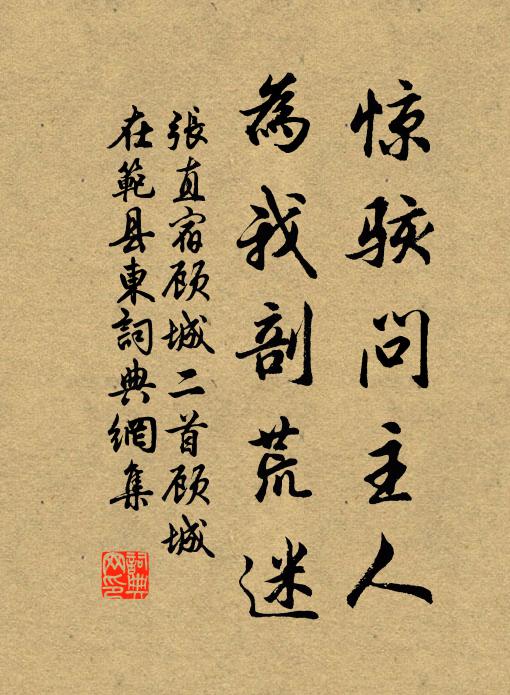 惊骇问主人
為我剖荒迷
張直宿顾城二首顾城
在範县東詞典網集
詞典网印